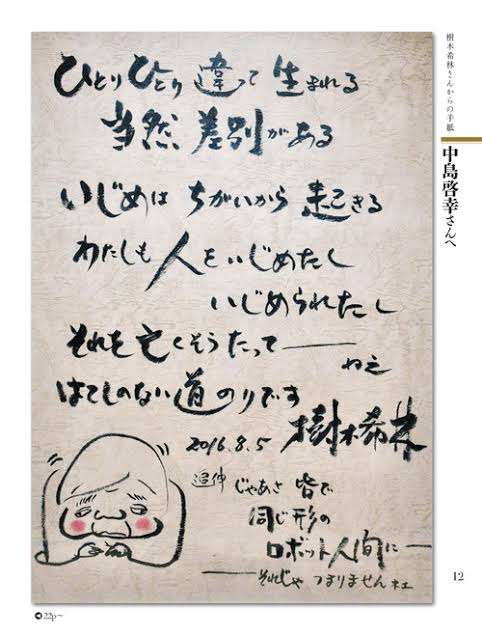 樹木希林さんからの手紙
中島啓幸さんへ
ひとりひとり違って生まれる
当然差別がある
いじめはちがいから起きる
わたしも人をいじめたし
いじめられたし
それを亡くそうたって――
ねえ
はてしのない道のりです
2016.8.5 樹木希林
追伸 じゃあさ皆で
同じ形の
ロボット人間に――
――それじゃつまりませんネェ
12
22p〜